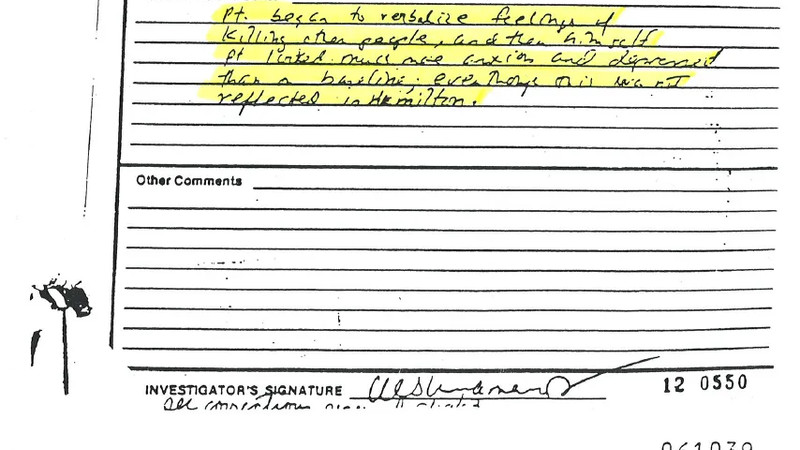 pt. began to verbalize feelings of
killing other people, and then himself
pt looked much more anxious and depressed
than on baseline; even though this was not
reflected in Hamilton.
Other Comments
INVESTIGATOR'S SIGNATURE
12 0550